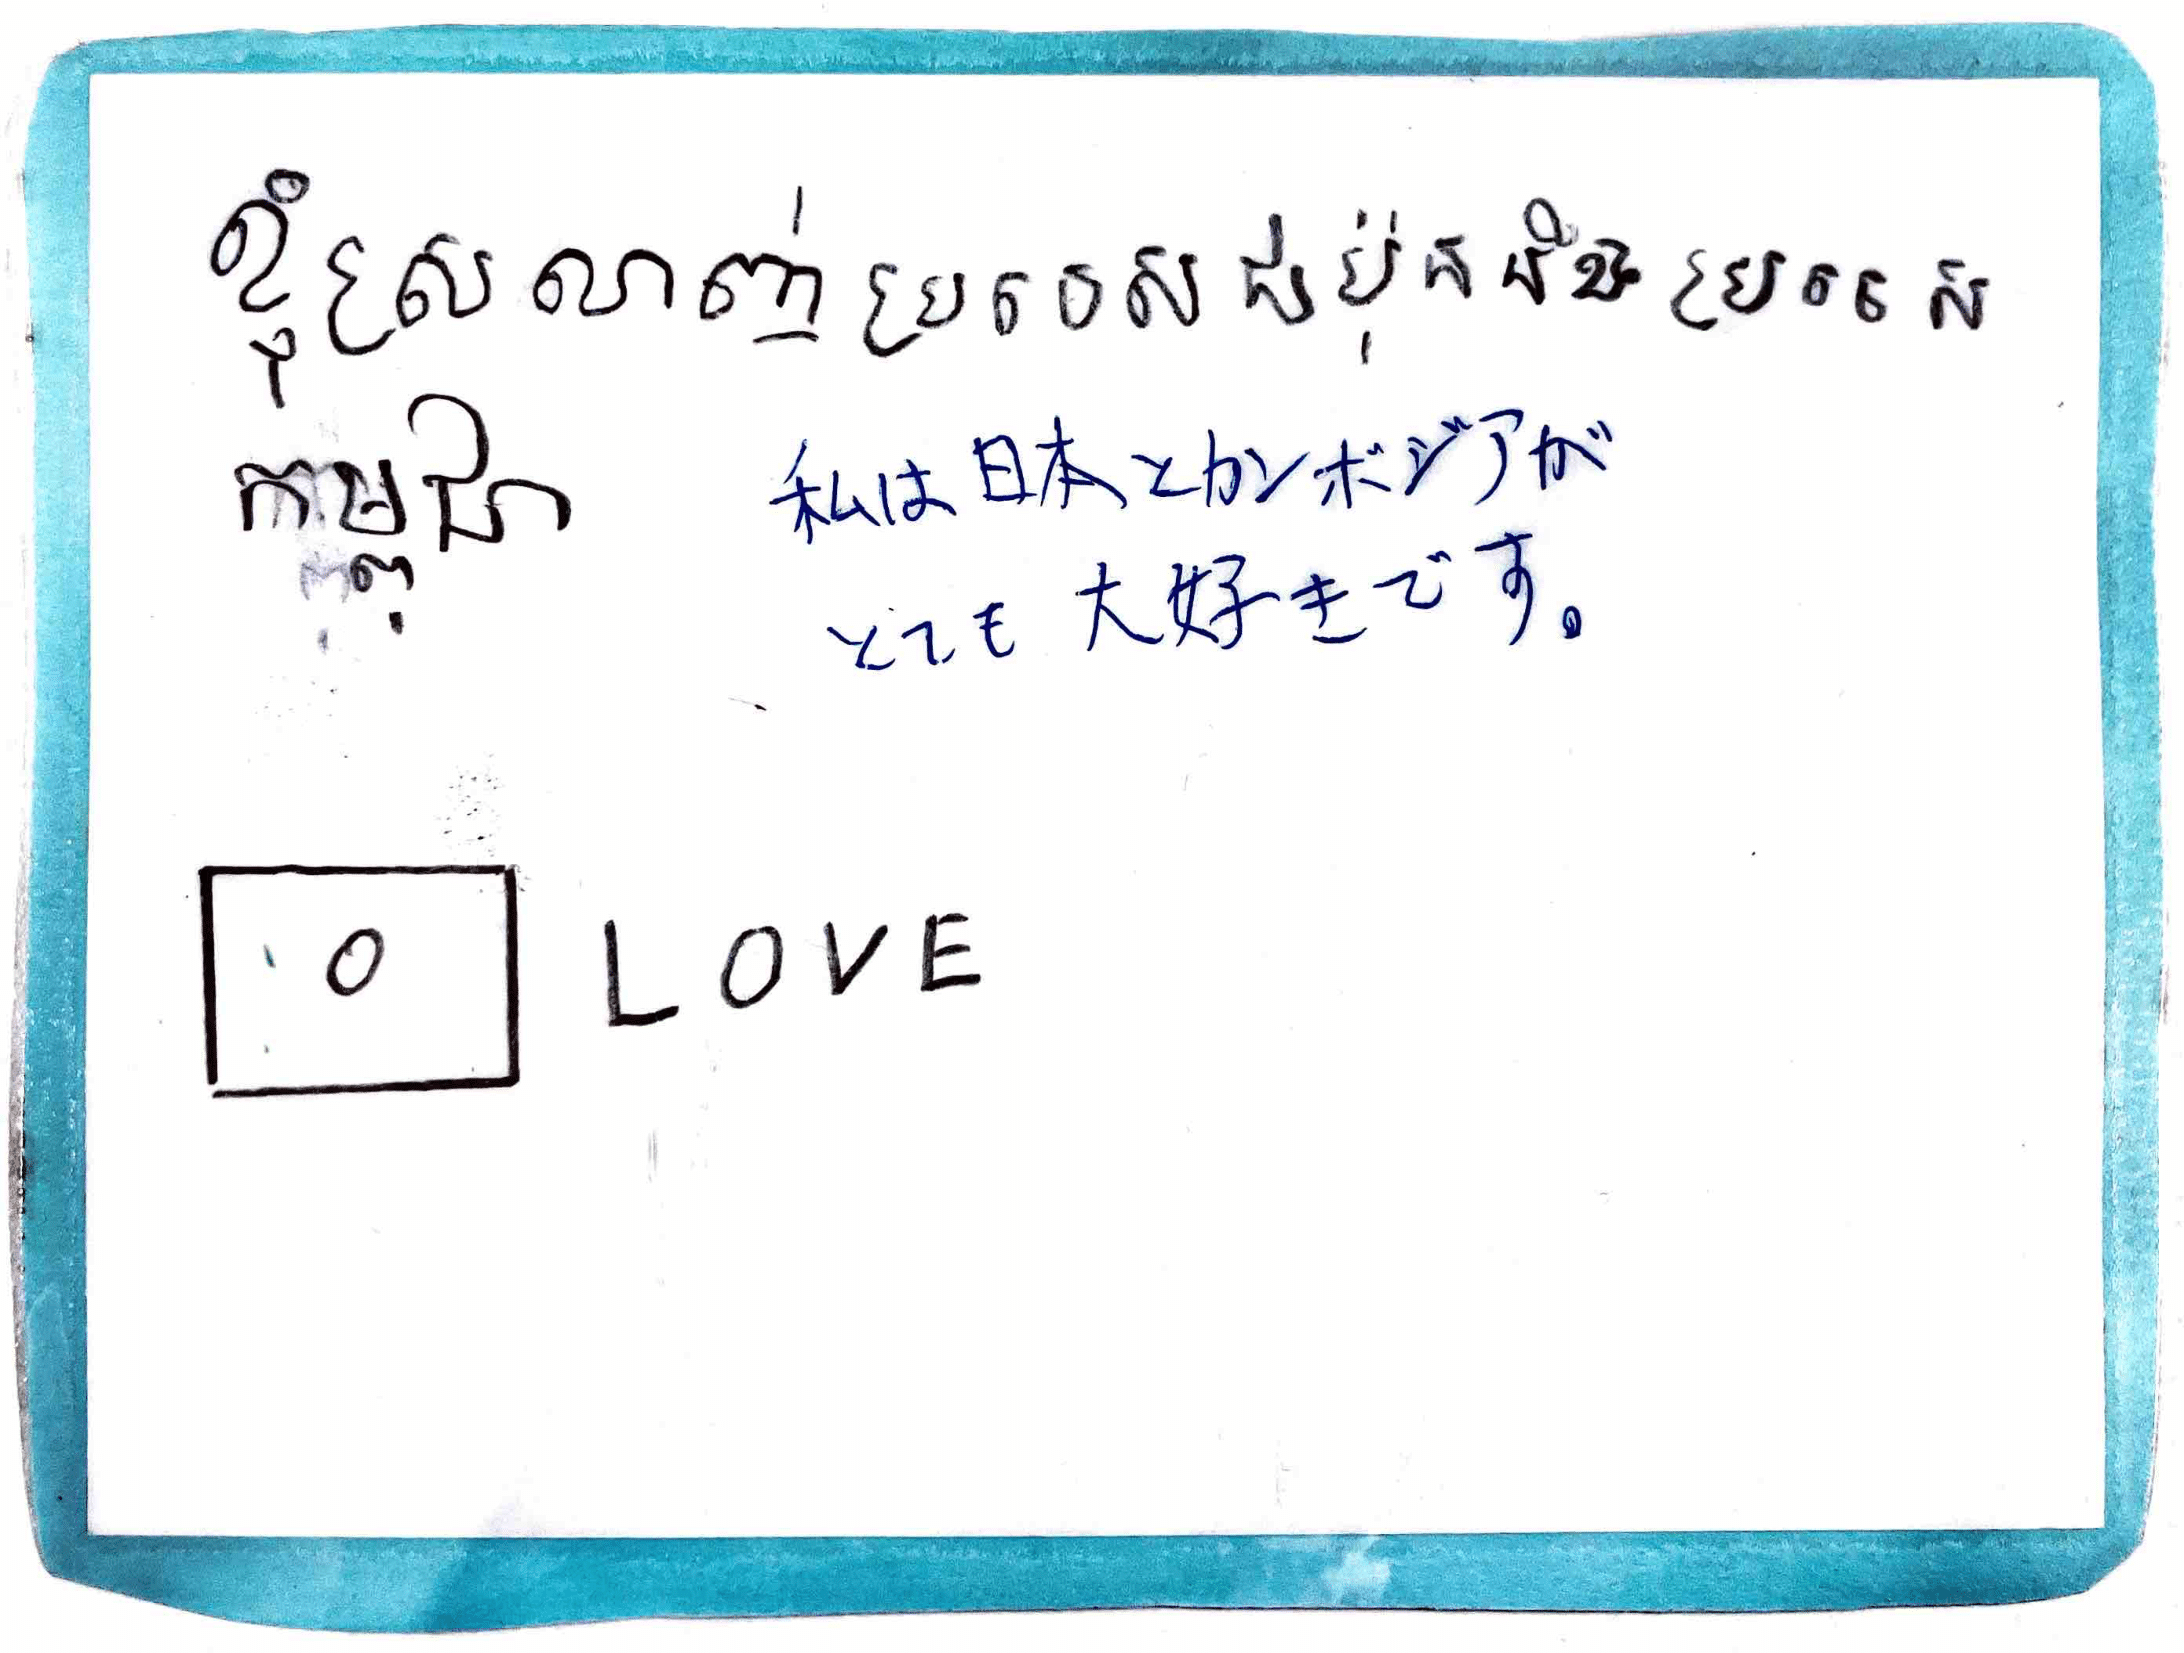 ខ្ញុំស្រលាញ់ប្រទេសជប៉ុននិងប្រទេស
កម្ពុជា
私は日本とカンボジアが
とても大好きです。
O LOVE